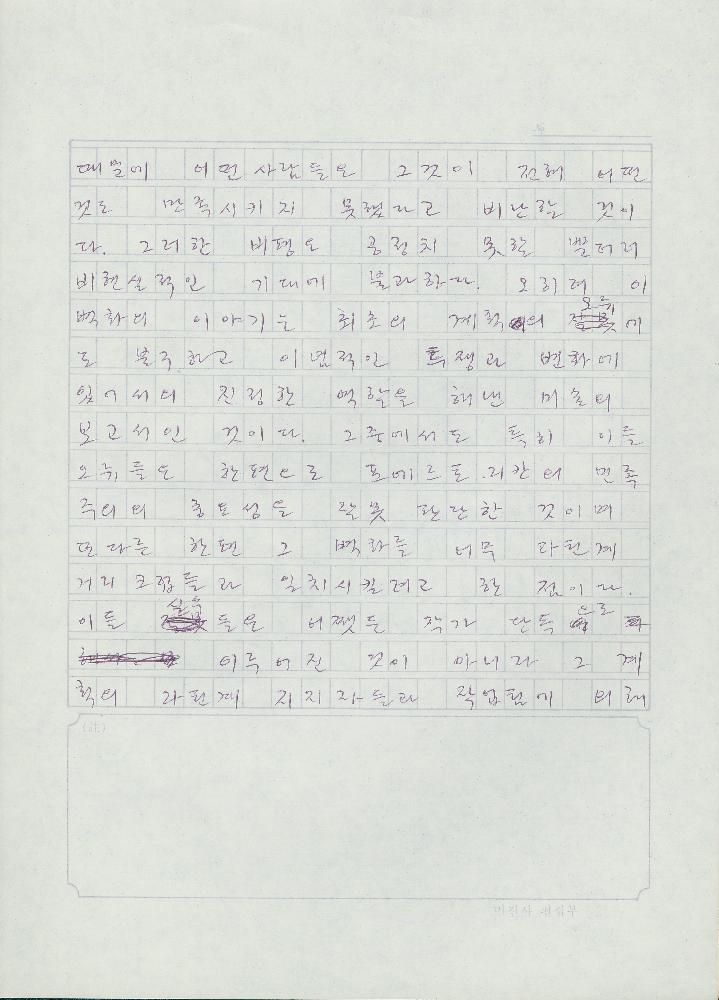 때문에 어떤 사람들은 그것이 전혀 어떤
것도 만족시키지 못했다고 비난할 것이
다. 그러한 비평은 공정치 못할 뿐더러
비현실적인 기대에 불과하다. 오히려 이
벽화의 이야기는 최초의 계획의 오류에
도 불구하고 이념적인 투쟁과 변화에
있어서의 진정한 역할을 해낸 미술의
보고서인 것이다. 그중에서도 특히 이들
오류들은 한편으로 포에르토.리칸의 민족
주의의 중요성을 잘못 판단한 것이며
또 다른 한편 그 벽화를 너무 라틴계
거리 크럽들과 일치시킬려고 한 점이다.
이들 실수들은 어쨋든 작가 단독으로
이루어진 것이 아니라 그 계
획의 라틴계 지지자들과 작업팀에 의해
(註)
미진사 편집부